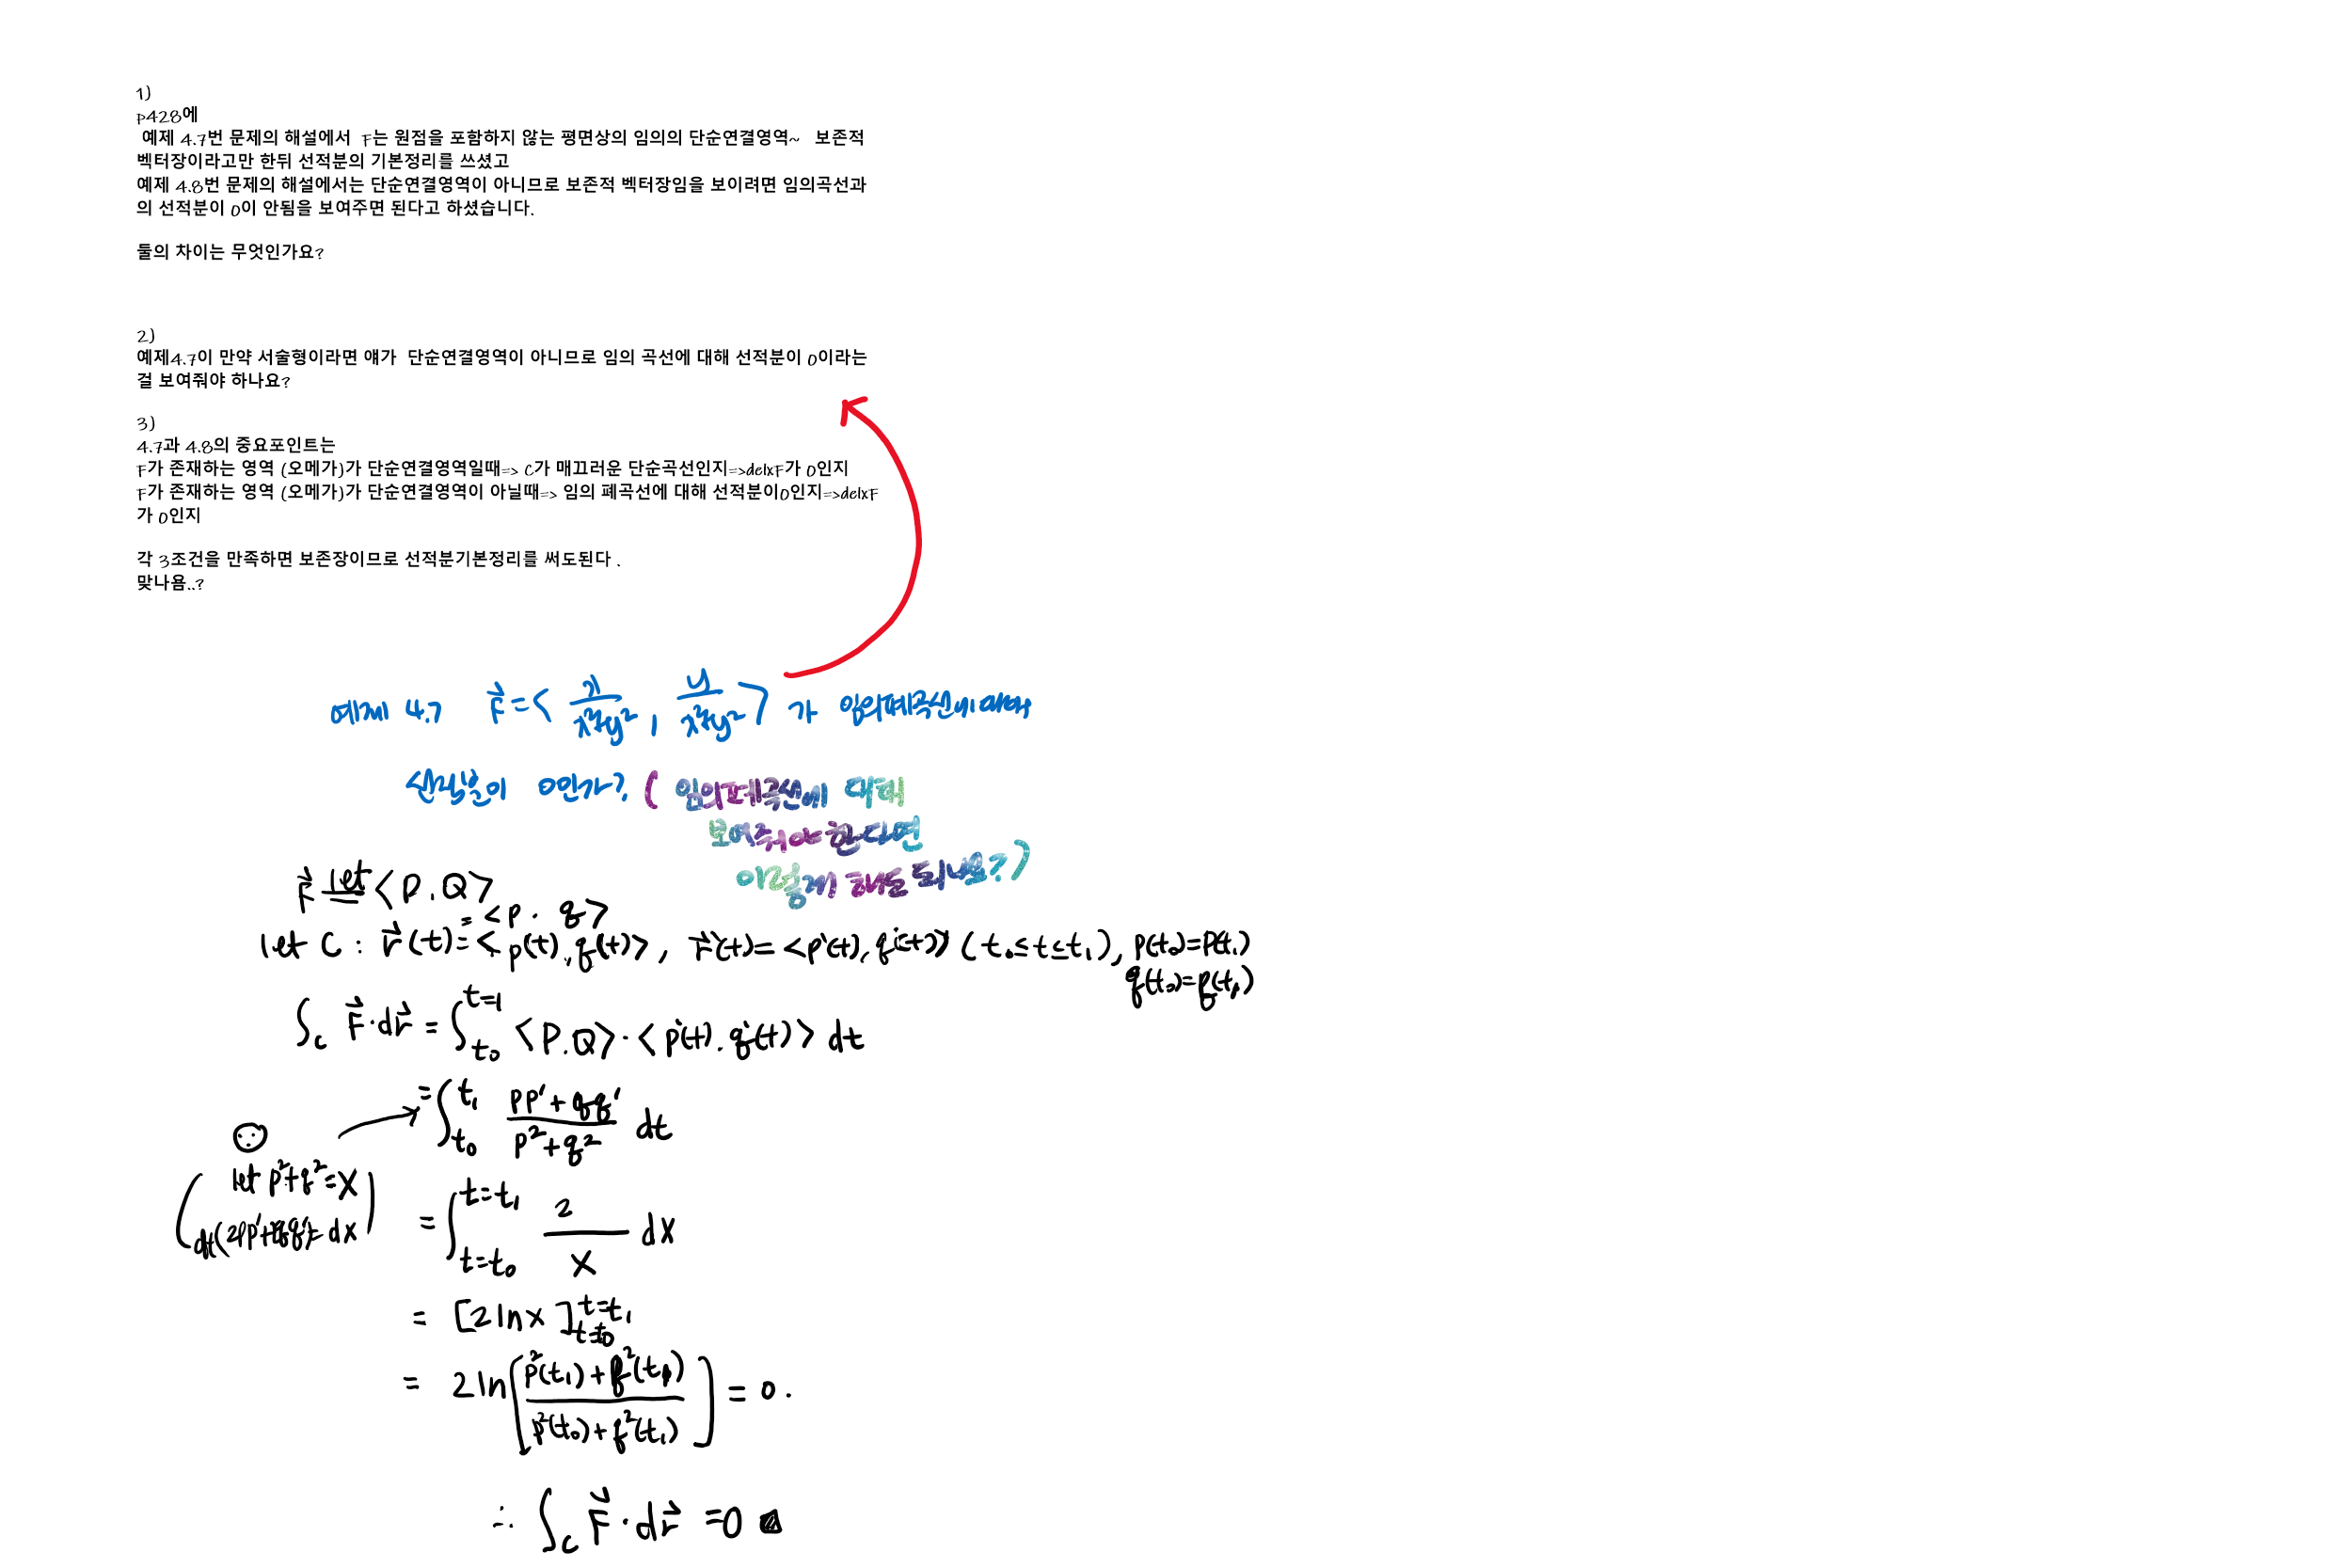 1)
p428에
예제 4.7번 문제의 해설에서 F는 원점을 포함하지 않는 평면상의 임의의 단순연결영역~ 보존적
벡터장이라고만 한뒤 선적분의 기본정리를 쓰셨고
예제 4.8번 문제의 해설에서는 단순연결영역이 아니므로 보존적 벡터장임을 보이려면 임의곡선과
의 선적분이 0이 안됨을 보여주면 된다고 하셨습니다.
둘의 차이는 무엇인가요?
2)
예제4.7이 만약 서술형이라면 얘가 단순연결영역이 아니므로 임의 곡선에 대해 선적분이 0이라는
걸 보여줘야 하나요?
3)
4.7과 4.8의 중요포인트는
F가 존재하는 영역 (오메가)가 단순연결영역일때=> C가 매끄러운 단순곡선인지=>delxF가 0인지
F가 존재하는 영역 (오메가)가 단순연결영역이 아닐때=> 임의 폐곡선에 대해 선적분이0인지=>delxF
가 0인지
각 3조건을 만족하면 보존장이므로 선적분기본정리를 써도된다 .
맞나욤..?
예제 4.7 F⃗=< x/(x²+y²) , y/(x²+y²) > 가 임의폐곡선에 대해
선적분이 0인가? ( 임의폐곡선에 대해
보여줘야 한다면
이렇게 해도 되나요? )
F⃗ let= <P.Q>
=<p . q>
let C : r⃗(t)=<p(t), q(t)>, r⃗'(t)=<p'(t), q'(t)> (t₀≤t≤t₁), p(t₀)=p(t₁)
q(t₀)=q(t₁)
∫_C F⃗·dr⃗ = ∫_{t₀}^{t=1} <P.Q>·<p'(t). q'(t)> dt
=∫_{t₀}^{t₁} (pp'+qq')/(p²+q²) dt
let p²+q²=X
dt(2pp'+2qq')=dX
=∫_{t=t₀}^{t=t₁} 2/X dX
= [2lnX]_{t=t₀}^{t=t₁}
= 2ln[(p²(t₁)+q²(t₁))/(p²(t₀)+q²(t₁))] = 0.
∴ ∫_C F⃗·dr⃗ =0